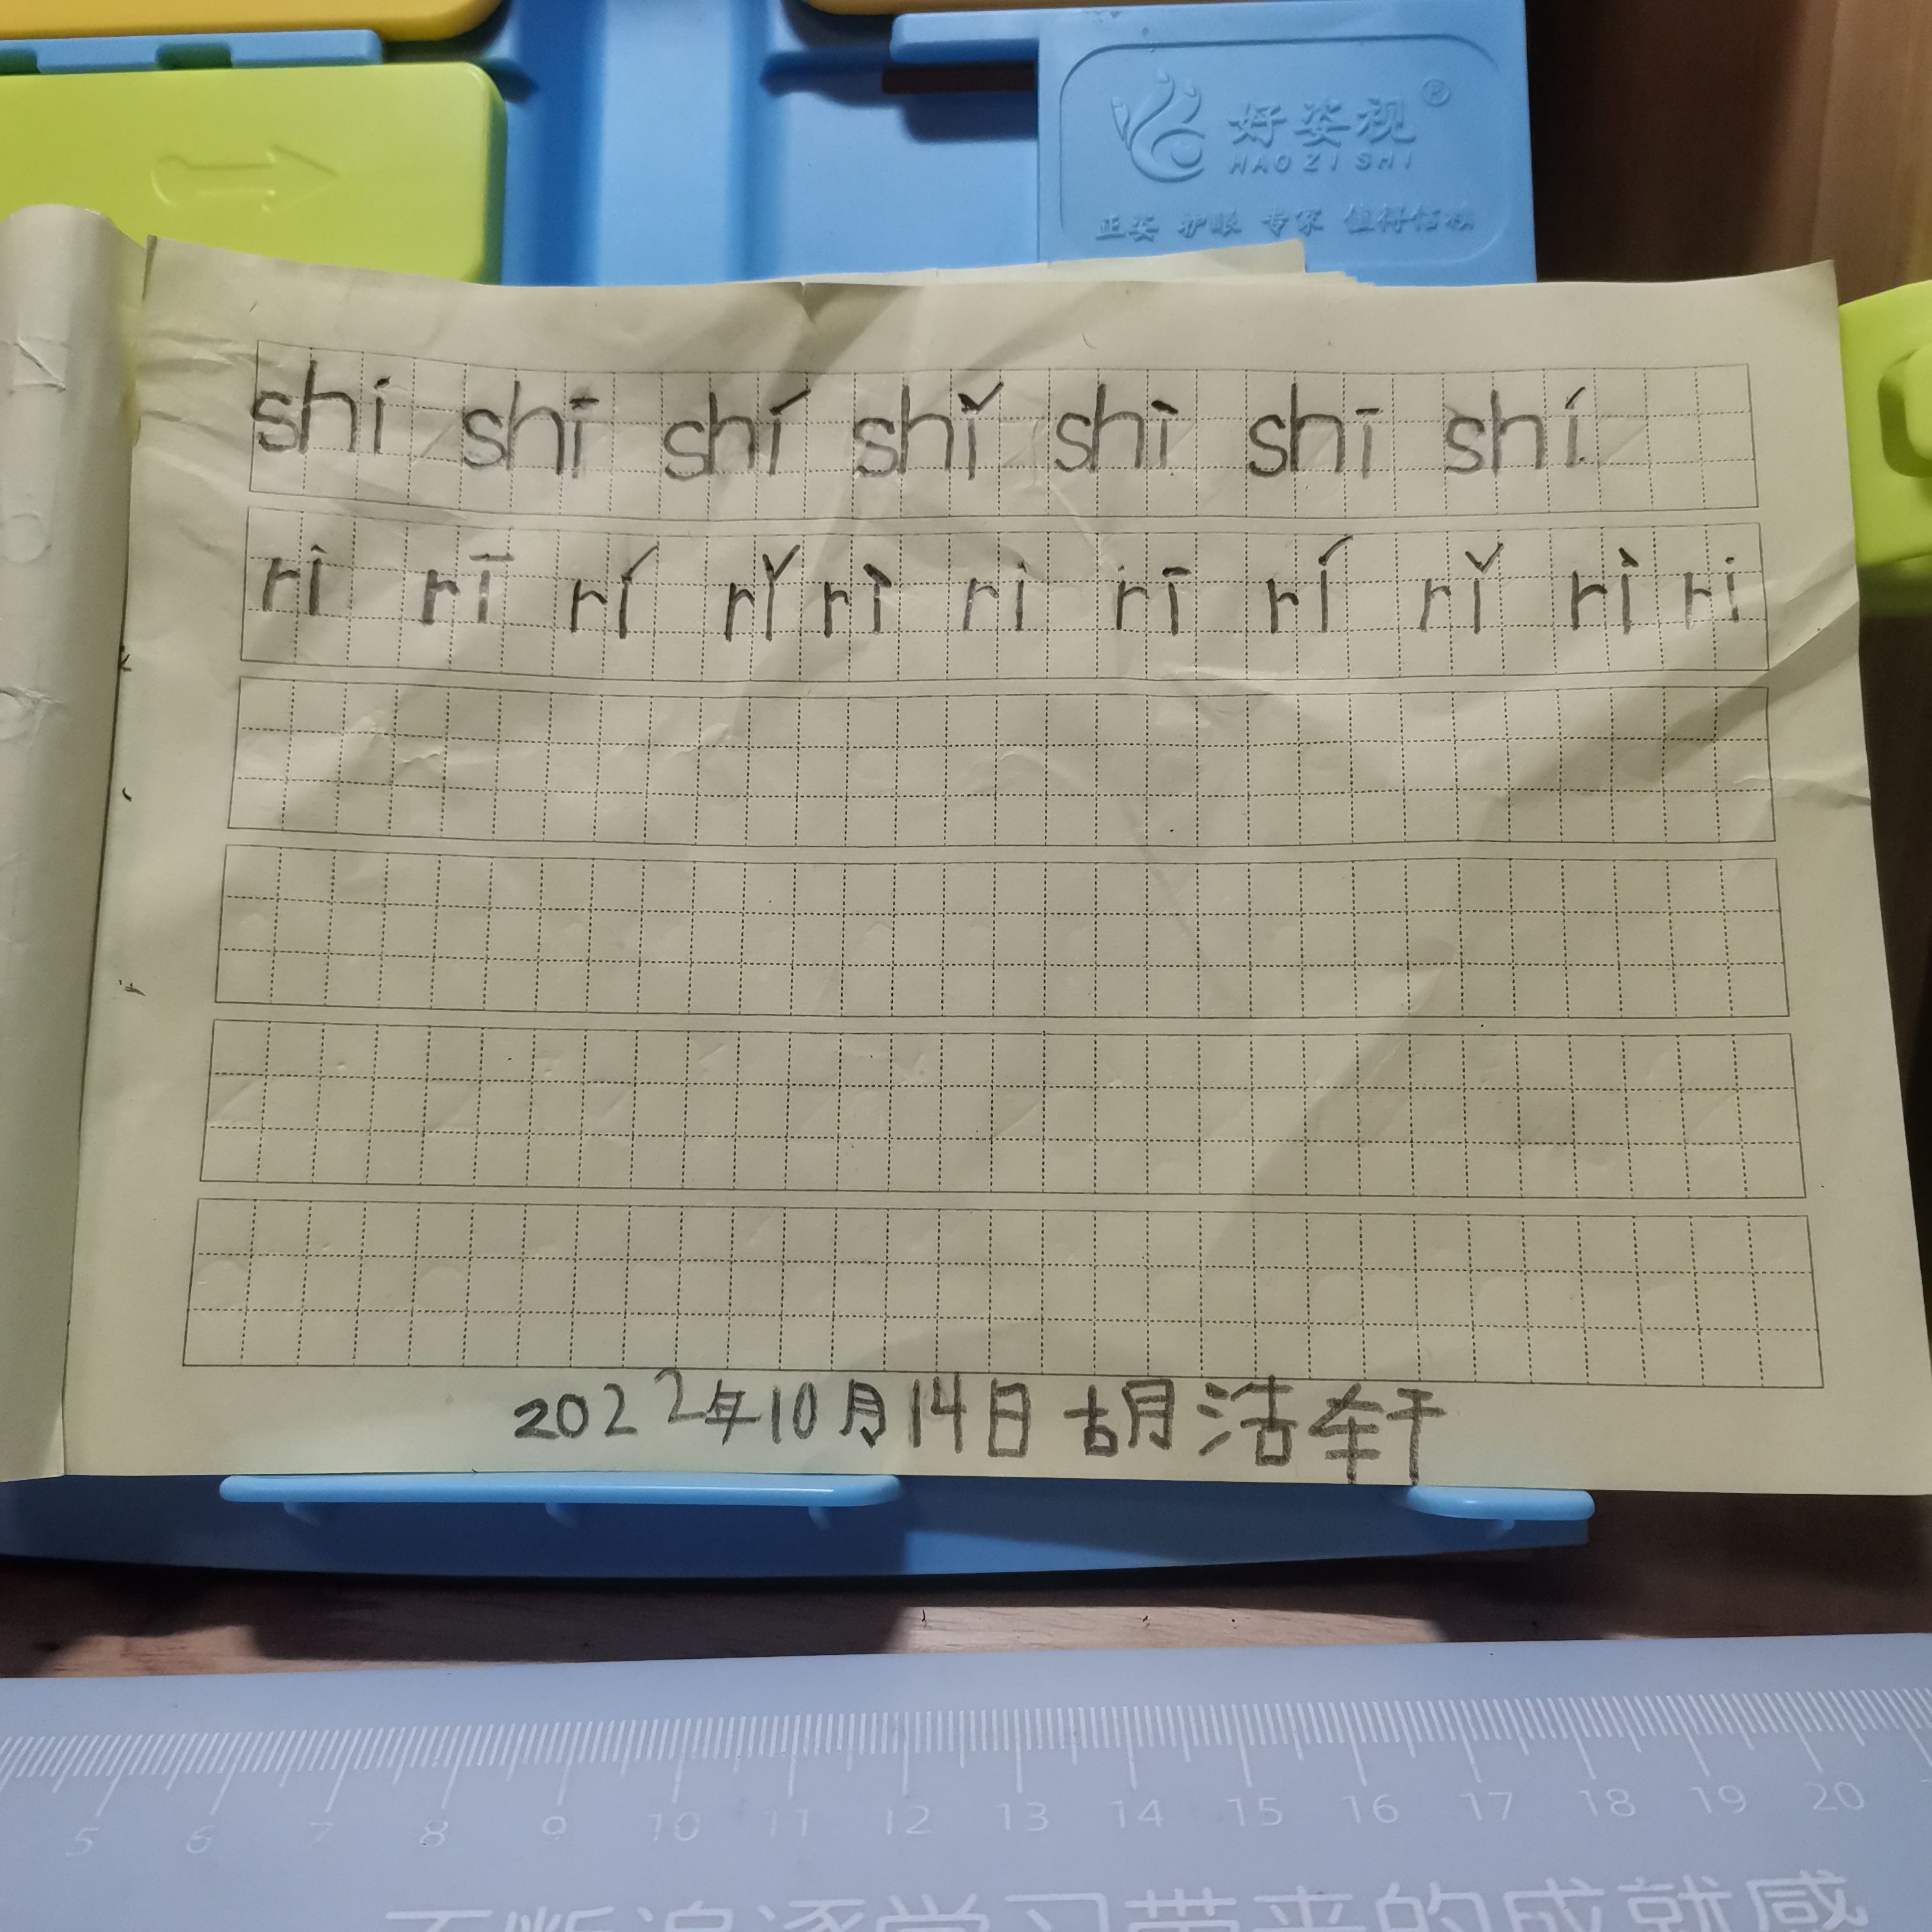 好姿视®
HAO ZI SHI
正姿 护眼 专家 值得信赖
shi shī shí shǐ shì shī shí
ri rī rí rǐ rì ri rī rí rǐ rì ri
2022年10月14日 胡浩轩
5 6 7 8 9 10 11 12 13 14 15 16 17 18 19 20
不断追逐学习带来的成就感